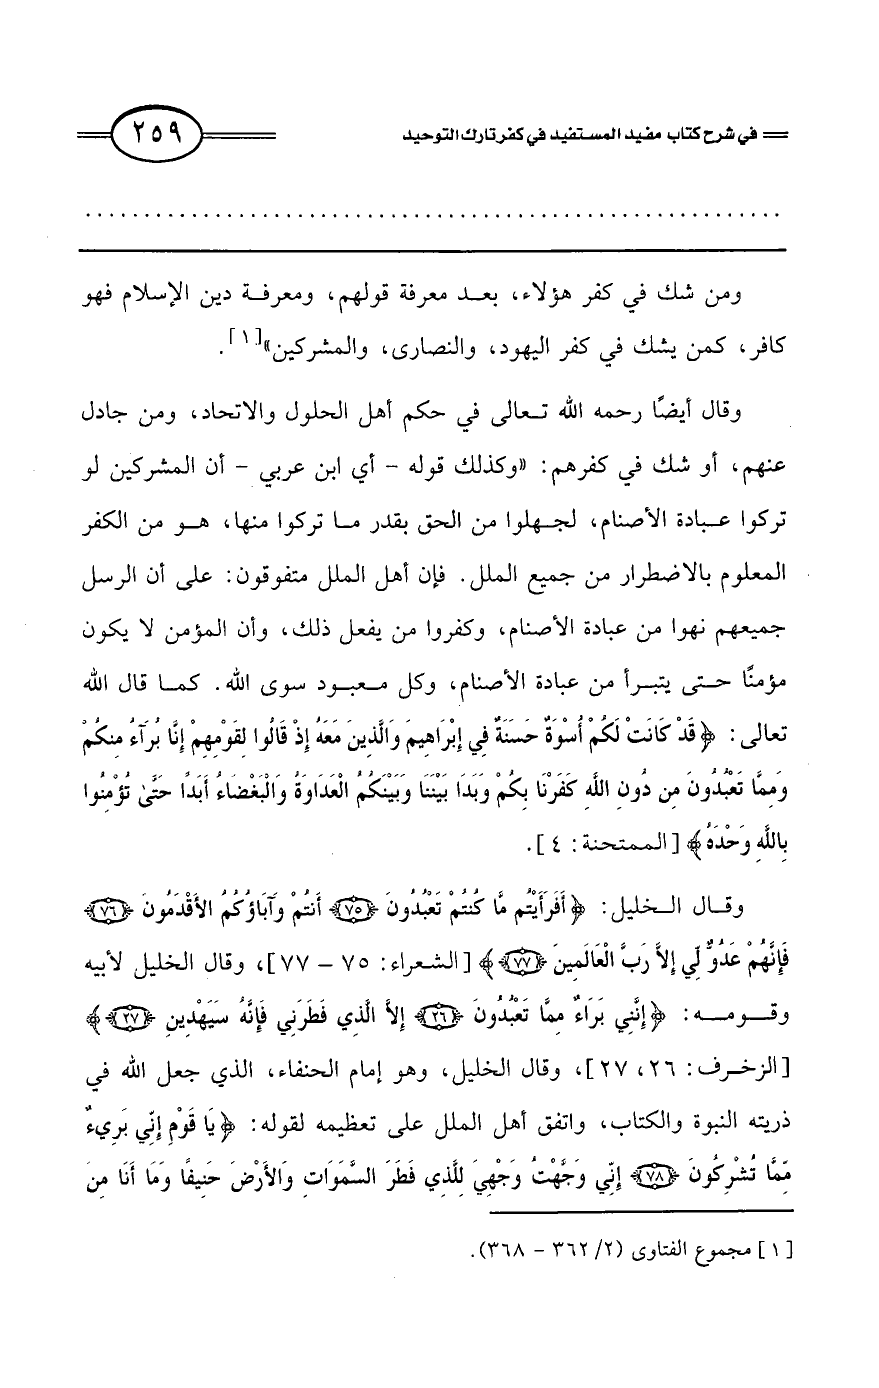 في شرح كتاب مفيد المستفيد في كفر تارك التوحيد
٢٥٩
ومن شك في كفر هؤلاء، بعد معرفة قولهم، ومعرفة دين الإسلام فهو
كافر، كمن يشك في كفر اليهود، والنصارى، والمشركين»[١].
وقال أيضًا رحمه الله تعالى في حكم أهل الحلول والاتحاد، ومن جادل
عنهم، أو شك في كفرهم: «وكذلك قوله - أي ابن عربي - أن المشركين لو
تركوا عبادة الأصنام، لجهلوا من الحق بقدر ما تركوا منها، هو من الكفر
المعلوم بالاضطرار من جميع الملل. فإن أهل الملل متفوقون: على أن الرسل
جميعهم نهوا من عبادة الأصنام، وكفروا من يفعل ذلك، وأن المؤمن لا يكون
مؤمنًا حتى يتبرأ من عبادة الأصنام، وكل معبود سوى الله. كما قال الله
تعالى: ﴿قَدْ كَانَتْ لَكُمْ أُسْوَةٌ حَسَنَةٌ فِي إِبْرَاهِيمَ وَالَّذِينَ مَعَهُ إِذْ قَالُوا لِقَوْمِهِمْ إِنَّا بُرَآءُ مِنكُمْ
وَمِمَّا تَعْبُدُونَ مِن دُونِ اللَّهِ كَفَرْنَا بِكُمْ وَبَدَا بَيْنَنَا وَبَيْنَكُمُ الْعَدَاوَةُ وَالْبَغْضَاءُ أَبَدًا حَتَّىٰ تُؤْمِنُوا
بِاللَّهِ وَحْدَهُ﴾ [الممتحنة: ٤].
وقال الخليل: ﴿أَفَرَأَيْتُم مَّا كُنتُمْ تَعْبُدُونَ ﴿٧٥﴾ أَنتُمْ وَآبَاؤُكُمُ الأَقْدَمُونَ ﴿٧٦﴾
فَإِنَّهُمْ عَدُوٌّ لِّي إِلاَّ رَبَّ الْعَالَمِينَ ﴿٧٧﴾﴾ [الشعراء: ٧٥ – ٧٧]، وقال الخليل لأبيه
وقومه: ﴿إِنَّنِي بَرَاءٌ مِّمَّا تَعْبُدُونَ ﴿٢٦﴾ إِلاَّ الَّذِي فَطَرَنِي فَإِنَّهُ سَيَهْدِينِ ﴿٢٧﴾﴾
[الزخرف: ٢٦، ٢٧]، وقال الخليل، وهو إمام الحنفاء، الذي جعل الله في
ذريته النبوة والكتاب، واتفق أهل الملل على تعظيمه لقوله: ﴿يَا قَوْمِ إِنِّي بَرِيءٌ
مِّمَّا تُشْرِكُونَ ﴿٧٨﴾ إِنِّي وَجَّهْتُ وَجْهِيَ لِلَّذِي فَطَرَ السَّمَوَاتِ وَالأَرْضَ حَنِيفًا وَمَا أَنَا مِنَ
[١] مجموع الفتاوى (٢/ ٣٦٢ – ٣٦٨).